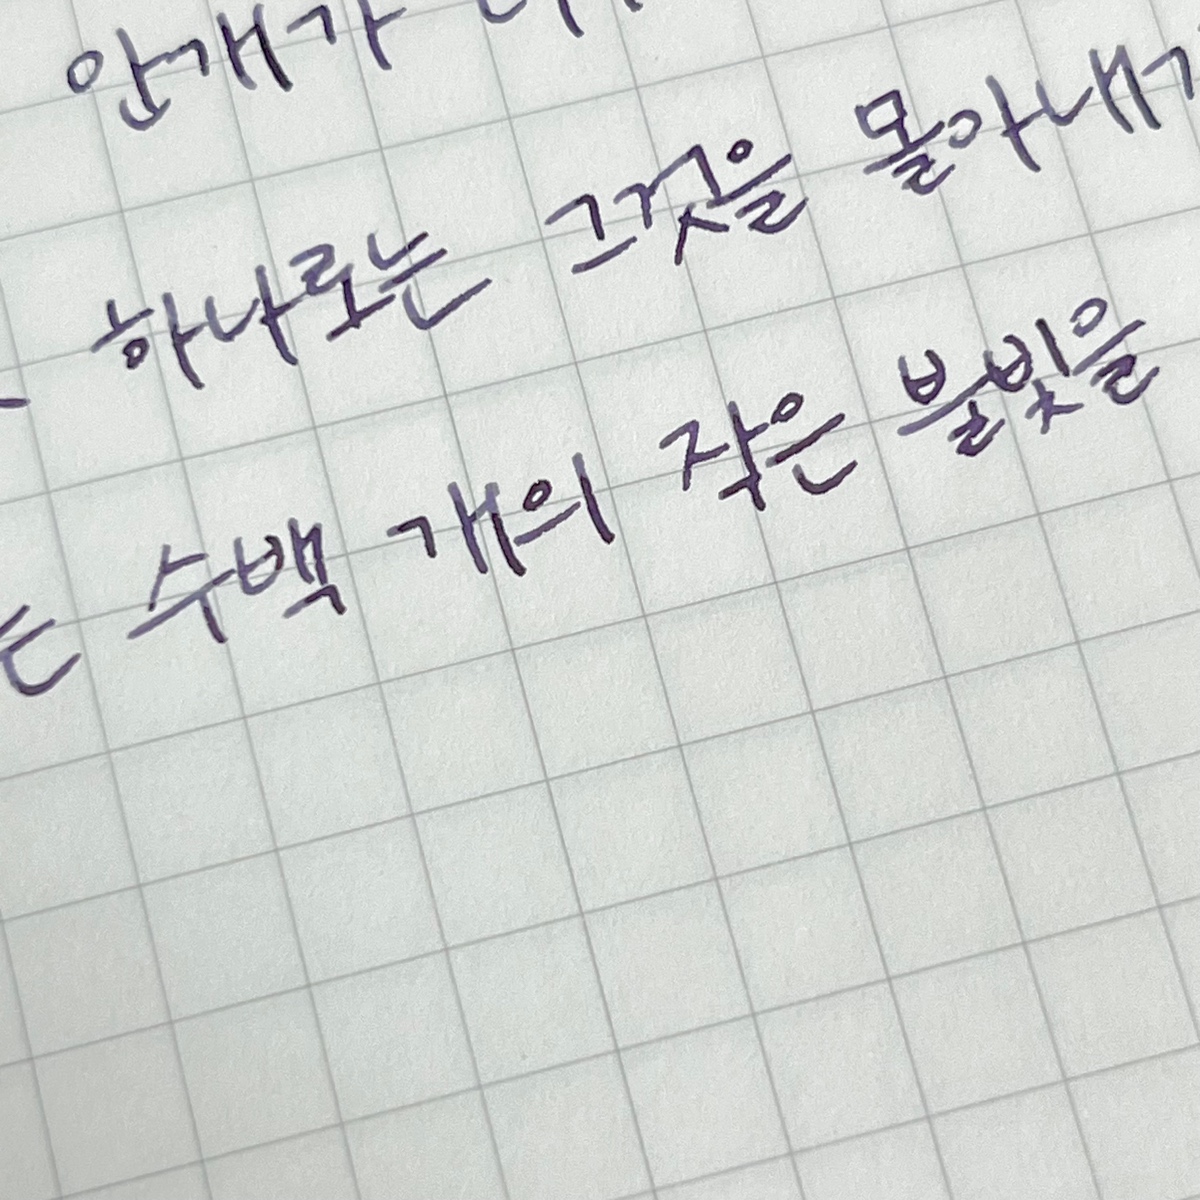 안개가
하나로는 그것을 몰아내
수백 개의 작은 불빛을